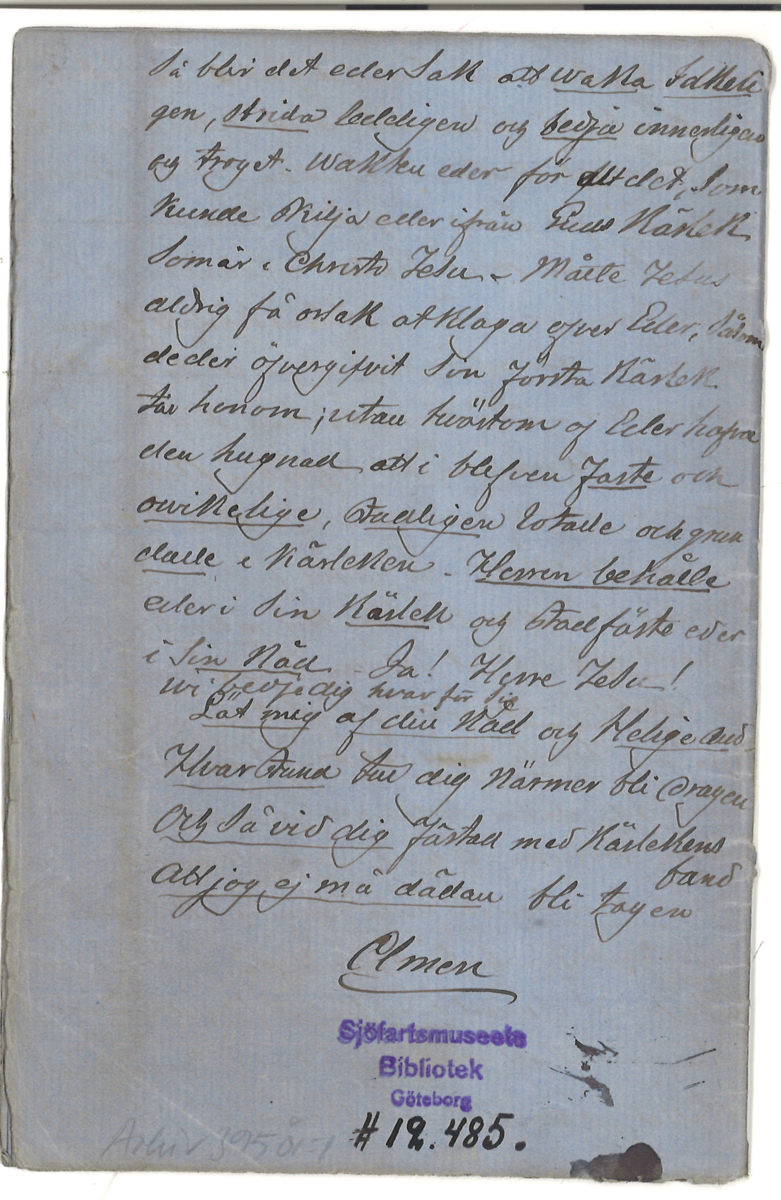 Så blir det eder Sak att waka Idkeli
gen, strida laddigen och bedja innerligen
og troget. Wakten eder för allt det, Som
kunde skilja eder ifrån Guds Kärlek
Som är i Christo Jesu - Måtte Jesus
aldrig få orsak at klaga öfver Eder, Såsom
de der öfvergifvit Sin första Kärlek
till honom; utan twärtom af Eder hafva
den hugnad att i blefven faste och
owikelige, Stadligen rotade och grun
dade i Kärleken - Herren behålle
eder i Sin Kärlek og Stadfäste eder
i Sin Nåd - Ja! Herre Jesu!
wi bedje dig hvar för sig
Låt mig af din Nåd og Helige And
Hvar Stund till dig Närmer bli Dragen
Och Så vid dig fästad med Kärlekens
band
Att jag ej må dädan bli tagen
Amen
Sjöfartsmuseets
Bibliotek
Göteborg
# 12.485.
Arkiv 395